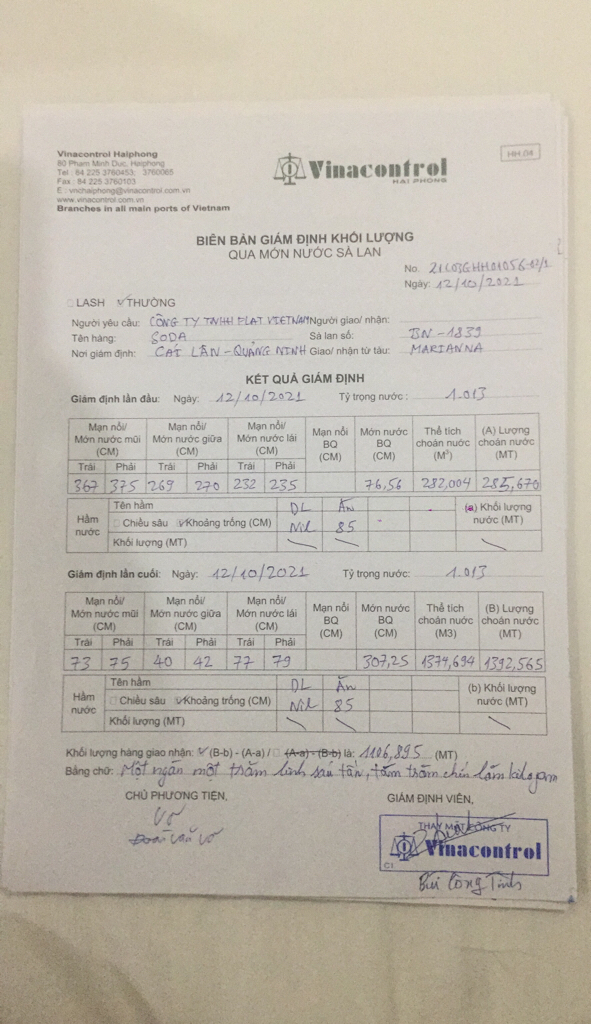 Vinacontrol Haiphong
80 Pham Minh Duc, Haiphong
Tel : 84 225 3760453; 3760065
Fax : 84 225 3760103
E : vnchaiphong@vinacontrol.com.vn
www.vinacontrol.com.vn
Branches in all main ports of Vietnam
Vinacontrol
HAI PHONG
HH.04
BIÊN BẢN GIÁM ĐỊNH KHỐI LƯỢNG
QUA MỚN NƯỚC SÀ LAN
No. 21L03GHH01056-12/1
Ngày: 12/10/2021
LASH THƯỜNG
Người yêu cầu: CÔNG TY TNHH FLAT VIETNAM Người giao/ nhận:
Tên hàng: SODA Sà lan số: BN-1839
Nơi giám định: CÁI LÂN-QUẢNG NINH Giao/ nhận từ tàu: MARIANNA
KẾT QUẢ GIÁM ĐỊNH
Giám định lần đầu: Ngày: 12/10/2021 Tỷ trọng nước : 1.013
Mạn nổi/ Mớn nước mũi (CM) Mạn nổi/ Mớn nước giữa (CM) Mạn nổi/ Mớn nước lái (CM) Mạn nổi BQ (CM) Mớn nước BQ (CM) Thể tích choán nước (M³) (A) Lượng choán nước (MT)
Trái Phải Trái Phải Trái Phải
367 375 269 270 232 235 76,56 282,004 285,670
Hầm nước Tên hầm DL Ăn (a) Khối lượng nước (MT)
Chiều sâu Khoảng trống (CM) Nil 85
Khối lượng (MT)
Giám định lần cuối: Ngày: 12/10/2021 Tỷ trọng nước: 1.013
Mạn nổi/ Mớn nước mũi (CM) Mạn nổi/ Mớn nước giữa (CM) Mạn nổi/ Mớn nước lái (CM) Mạn nổi BQ (CM) Mớn nước BQ (CM) Thể tích choán nước (M3) (B) Lượng choán nước (MT)
Trái Phải Trái Phải Trái Phải
73 75 40 42 77 79 307,25 1374,694 1392,565
Hầm nước Tên hầm DL Ăn (b) Khối lượng nước (MT)
Chiều sâu Khoảng trống (CM) Nil 85
Khối lượng (MT)
Khối lượng hàng giao nhận: (B-b) - (A-a) / (A-a) - (B-b) là: 1106,895 (MT)
Bằng chữ: Một ngàn một trăm linh sáu tấn, tám trăm chín lăm kilogam
CHỦ PHƯƠNG TIỆN, GIÁM ĐỊNH VIÊN,
Vở
Đoàn Văn Vở
THAY MẶT CÔNG TY
Vinacontrol
C1
Bùi Công Tính